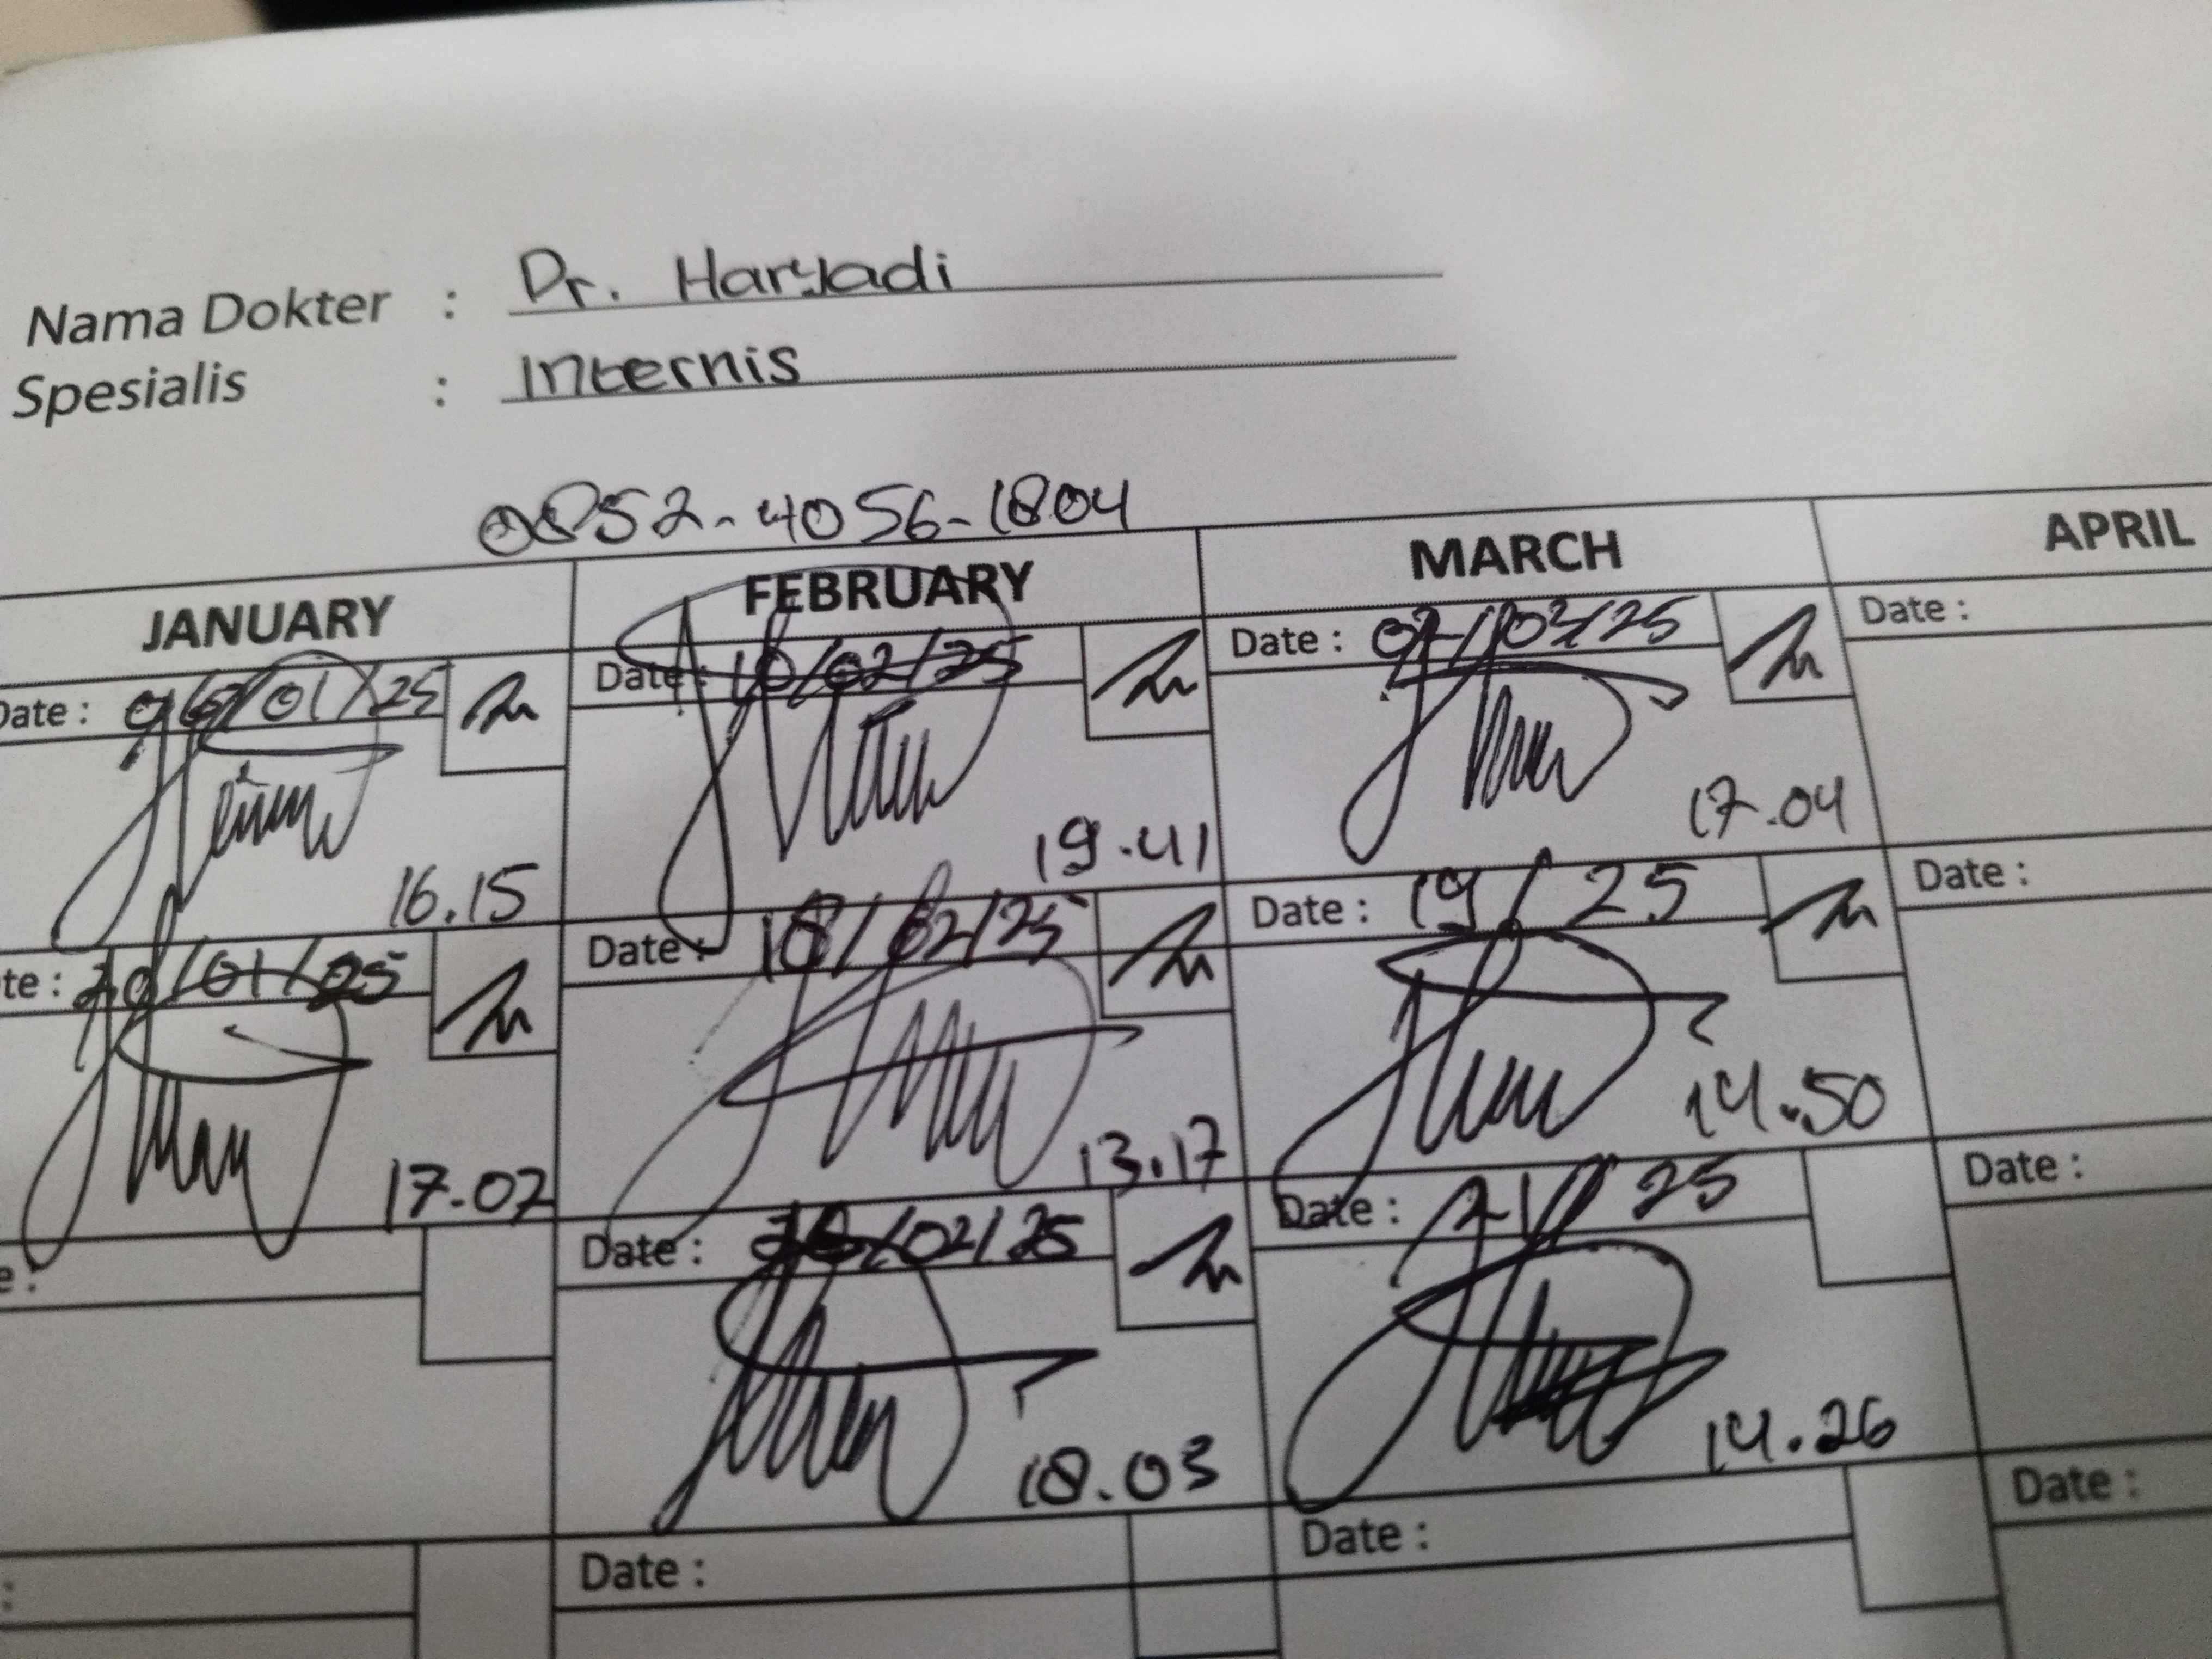 Nama Dokter : Dr. Haryadi
Spesialis : Internis
0852-4056-1804
JANUARY FEBRUARY MARCH APRIL
Date : 06/01/25 Date : 10/02/25 Date : 07/03/25 Date :
16.15 19.41 17.04
te : 20/01/25 Date : 18/02/25 Date : 19/ 25 Date :
17.02 13.17 14.50
e : Date : /02/25 Date : 21/ 25 Date :
18.03 14.26
: Date : Date : Date :